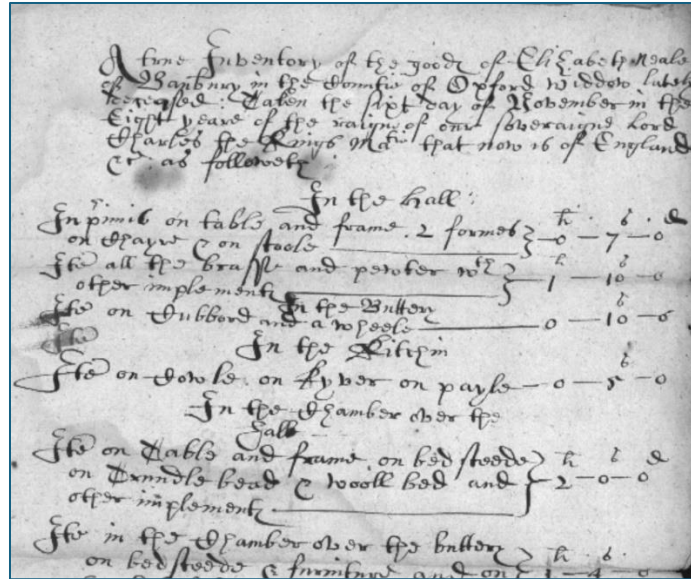 A true Inventory of the goods of Elizabeth Neale
of Banbury in the Countie of Oxford widdow lately
deceased: Taken the sixt day of November in the
Eight yeare of the raigne of our soveraigne Lord
Charles the Kings Matie that now is of England
&c as followeth
In the hall:
li s d
Inprimis on table and frame 2 formes
on chayre & on stoole 0 – 7 – 0
li s
Ite all the brasse and pewter wth
other implements 1 – 10 – 0
In the Buttery
s
Ite on Cubbord and a wheele 0 – 10 – 0
Ite
In the Kitchin
s
Ite on Cowle on kyver on payle – 0 – 5 – 0
In the Chamber over the
hall
li s d
Ite on Table and frame on bedsteede
on Trundle bead & wooll bed and 2 – 0 – 0
other implements
Ite in the Chamber over the buttery
li s
on bedsteede & furniture and on 1 4 0